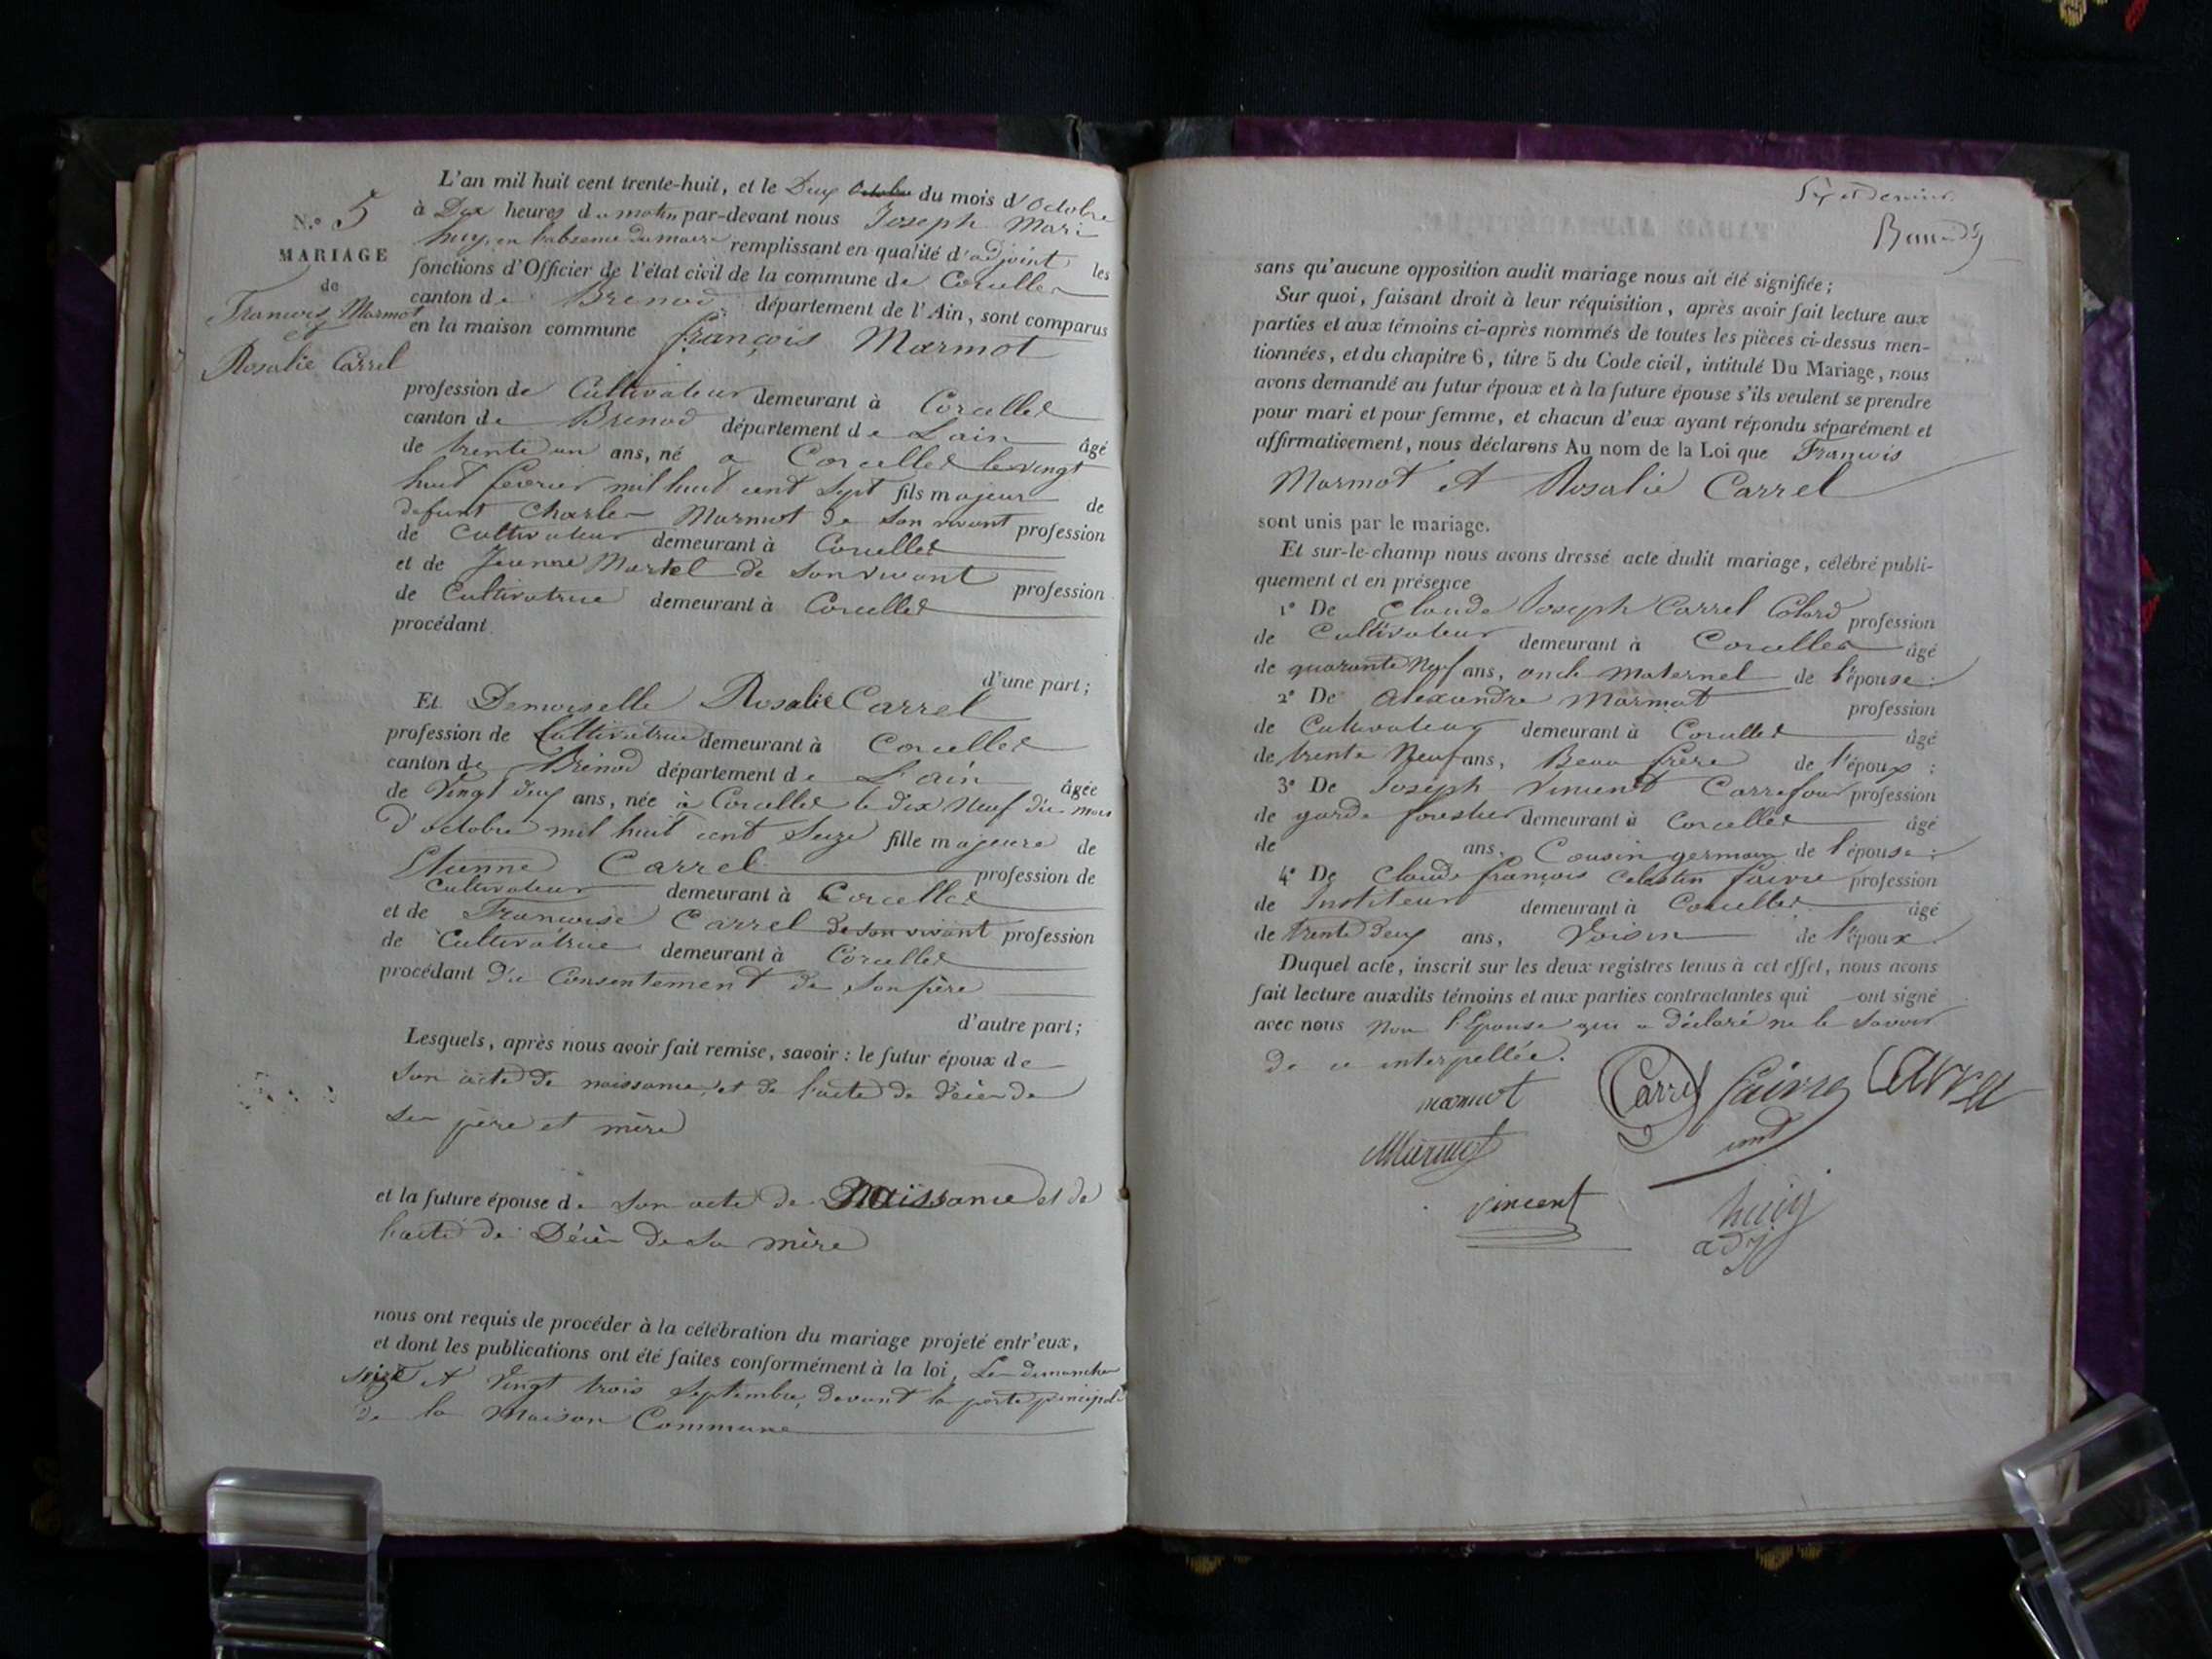 N.º 5
MARIAGE
de
François Marmot
et
Rosalie Carrel
L'an mil huit cent trente-huit, et le Deux octobre du mois d'Octobre
à Dix heures du matin par-devant nous Joseph Mari
huy, en l'absence du maire remplissant en qualité d'adjoint les
fonctions d'Officier de l'état civil de la commune de Corcelles
canton de Brenod département de l'Ain, sont comparus
en la maison commune François Marmot
profession de Cultivateur demeurant à Corcelles
canton de Brenod département de L'ain âgé
de trente un ans, né a Corcelles le vingt
huit fevrier mil huit cent sept fils majeur de
defunt Charles Marmot de son vivant profession
de Cultivateur demeurant à Corcelles
et de Jeanne Martel de son vivant profession
de Cultivatrice demeurant à Corcelles
procédant
d'une part;
Et Demoiselle Rosalie Carrel
profession de Cultivatrice demeurant à Corcelles
canton de Brenod département de L'ain âgée
de Vingt deux ans, née à Corcelles le dix Neuf du mois
D'octobre mil huit cent Seize fille majeure de
Etienne Carrel profession de
Cultivateur demeurant à Corcelles
et de Francoise Carrel de son vivant profession
de Cultivatrice demeurant à Corcelles
procédant du Consentement de Son père
d'autre part;
Lesquels, après nous avoir fait remise, savoir: le futur époux de
Son acte de naissance, et de l'acte de décès de
ses père et mère
et la future épouse de son acte de Naissance et de
l'acte de Décès de sa mère
nous ont requis de procéder à la célébration du mariage projeté entr'eux,
et dont les publications ont été faites conformément à la loi, Les dimanches
seize et Vingt trois Septembre, devant la porte principale
de la Maison Commune
Six et dernier
sans qu'aucune opposition audit mariage nous ait été signifiée;
Sur quoi, faisant droit à leur réquisition, après avoir fait lecture aux
parties et aux témoins ci-après nommés de toutes les pièces ci-dessus men-
tionnées, et du chapitre 6, titre 5 du Code civil, intitulé Du Mariage, nous
avons demandé au futur époux et à la future épouse s'ils veulent se prendre
pour mari et pour femme, et chacun d'eux ayant répondu séparément et
affirmativement, nous déclarons Au nom de la Loi que François
Marmot et Rosalie Carrel
sont unis par le mariage.
Et sur-le-champ nous avons dressé acte dudit mariage, célébré publi-
quement et en présence
1º De Claude Joseph Carrel Colard profession
de Cultivateur demeurant à Corcelles âgé
de quarante Neuf ans, oncle maternel de l'épouse;
2º De Alexandre Marmot profession
de Cultivateur demeurant à Corcelles âgé
de trente Neuf ans, Beau frère de l'époux;
3º De Joseph Vincent Carrefour profession
de garde forestier demeurant à Corcelles âgé
de ans, Cousin germain de l'épouse;
4º De Claude françois Celestin faivre profession
de Instituteur demeurant à Corcelles âgé
de trente deux ans, Voisin de l'époux.
Duquel acte, inscrit sur les deux registres tenus à cet effet, nous avons
fait lecture auxdits témoins et aux parties contractantes qui ont signé
avec nous Non l'Epouse qui a déclaré ne le savoir
de ce interpellée.
marmot Carrel faivre Carrel
Marmot
vincent huy
adj